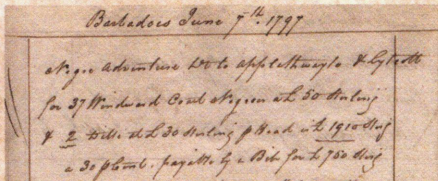 Barbadoes June 7th. 1797
Adventure Dr to Applethwaite &
for 37 Windward Coast Negroes a £50 Sterling
& 2 Ditto at £30 Sterling p Head is £1910 Stlg
a 30 p Cent. payable by a Bill for £750 Stlg